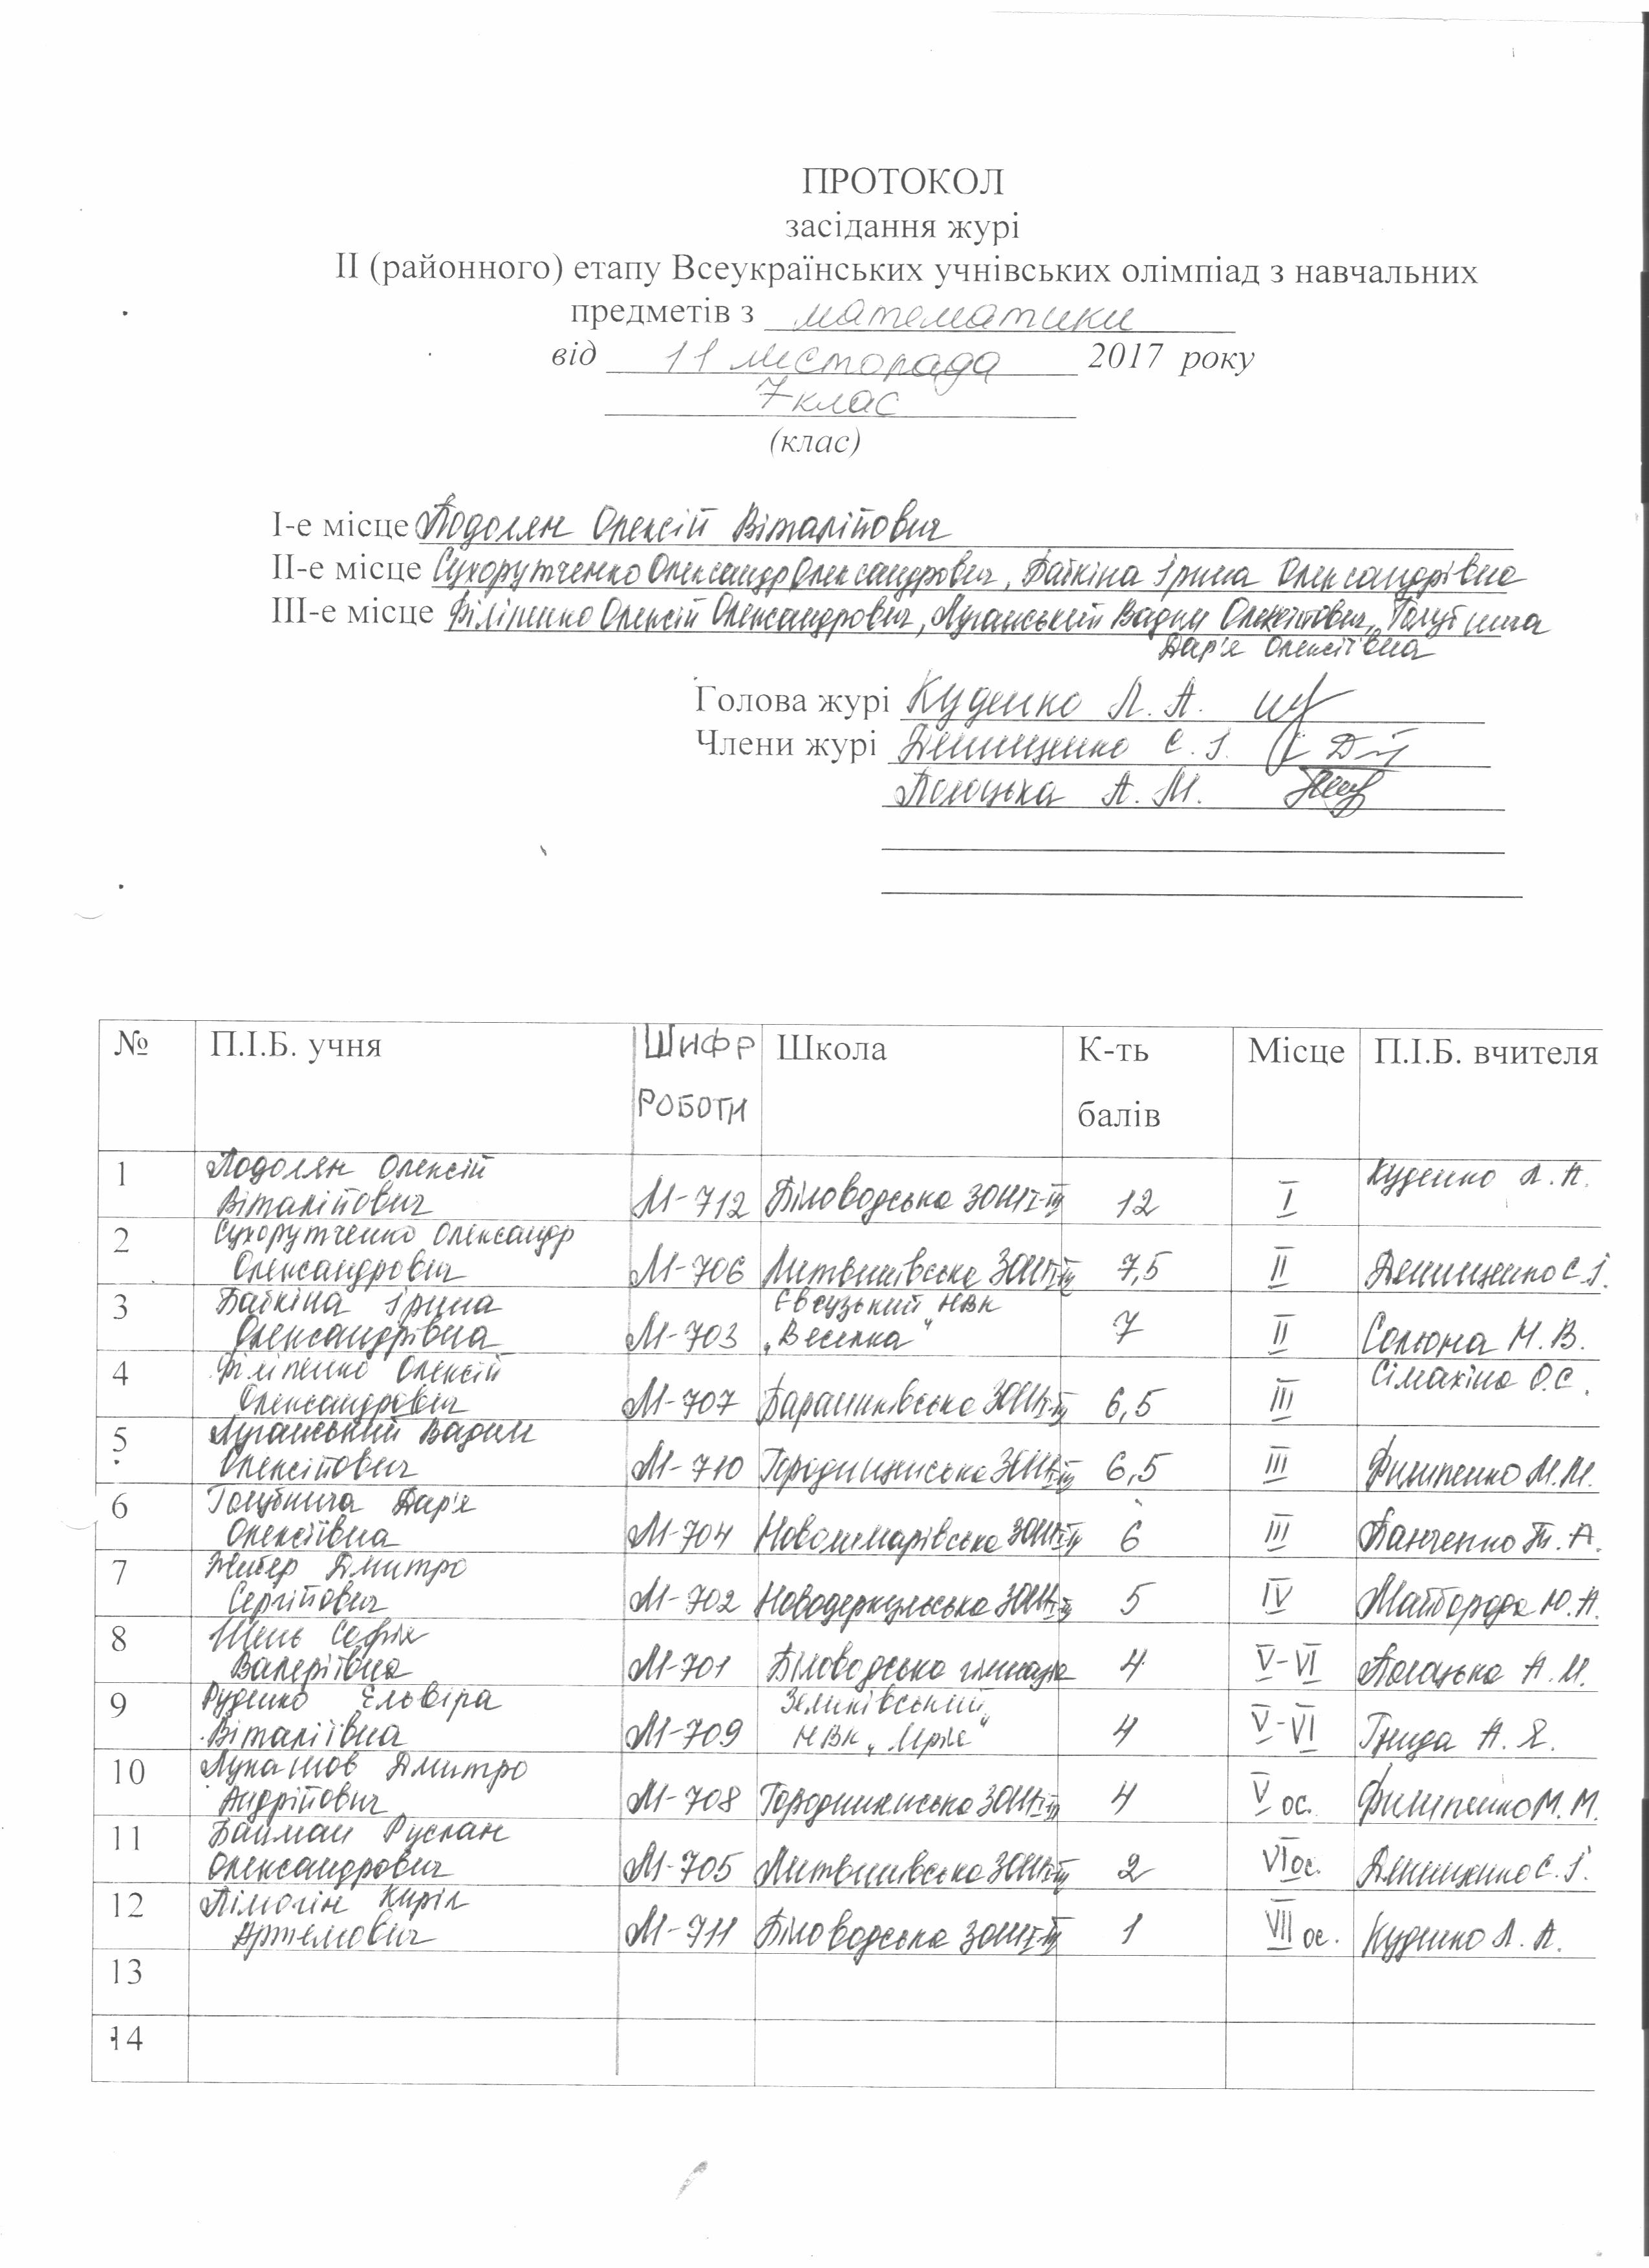 ПРОТОКОЛ
засідання журі
ІІ (районного) етапу Всеукраїнських учнівських олімпіад з навчальних
предметів з математики
від 11 листопада 2017 року
7 клас
(клас)
І-е місце Подолян Олексій Віталійович
ІІ-е місце Сухорутченко Олександр Олександрович, Байкіна Ірина Олександрівна
ІІІ-е місце Філіпенко Олексій Олександрович, Луганський Вадим Олексійович, Голубнича
Дар'я Олексіївна
Голова журі Куденко Л. А.
Члени журі Денищенко С. І.
Полоцька А. М.
№ П.І.Б. учня Шифр роботи Школа К-ть балів Місце П.І.Б. вчителя
1 Подолян Олексій Віталійович М-712 Біловодська ЗОШ І-ІІІ 12 І Куденко Л. А.
2 Сухорутченко Олександр Олександрович М-706 Литвинівська ЗОШ І-ІІІ 7,5 ІІ Денищенко С. І.
3 Байкіна Ірина Олександрівна М-703 Євсузький НВК „Веселка" 7 ІІ Солюна Н. В.
4 Філіпенко Олексій Олександрович М-707 Бараниківська ЗОШ І-ІІІ 6,5 ІІІ Сімахіна О.С.
5 Луганський Вадим Олексійович М-710 Городищенська ЗОШ І-ІІІ 6,5 ІІІ Филипенко М.М.
6 Голубнича Дар'я Олексіївна М-704 Новолимарівська ЗОШ І-ІІІ 6 ІІІ Панченко Т. А.
7 Дмитро Сергійович М-702 Новодеркульська ЗОШ І-ІІІ 5 IV Майборода Ю. А.
8 Шень Софія Валеріївна М-701 Біловодська гімназія 4 V-VI Полоцька А. М.
9 Руденко Ельвіра Віталіївна М-709 Зеликівський НВК „Мрія" 4 V-VI Гнида А. Я.
10 Лукашов Дмитро Андрійович М-708 Городищенська ЗОШ І-ІІІ 4 V ос. Филипенко М. М.
11 Байман Руслан Олександрович М-705 Литвинівська ЗОШ І-ІІІ 2 VI ос. Денищенко С. І.
12 Пімогін Киріл Артемович М-711 Біловодська ЗОШ І-ІІІ 1 VII ос. Куденко Л. А.
13
14